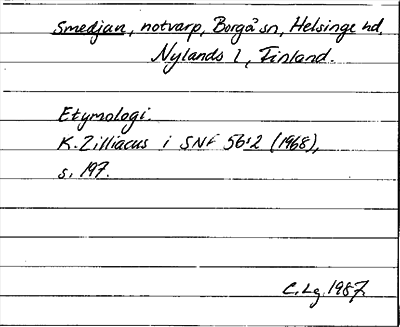 Smedjan, notvarp, Borgå sn, Helsinge hd,
Nylands l, Finland.
Etymologi.
K. Zilliacus i SNF 56:2 (1968),
s. 197.
C. Lg. 1987